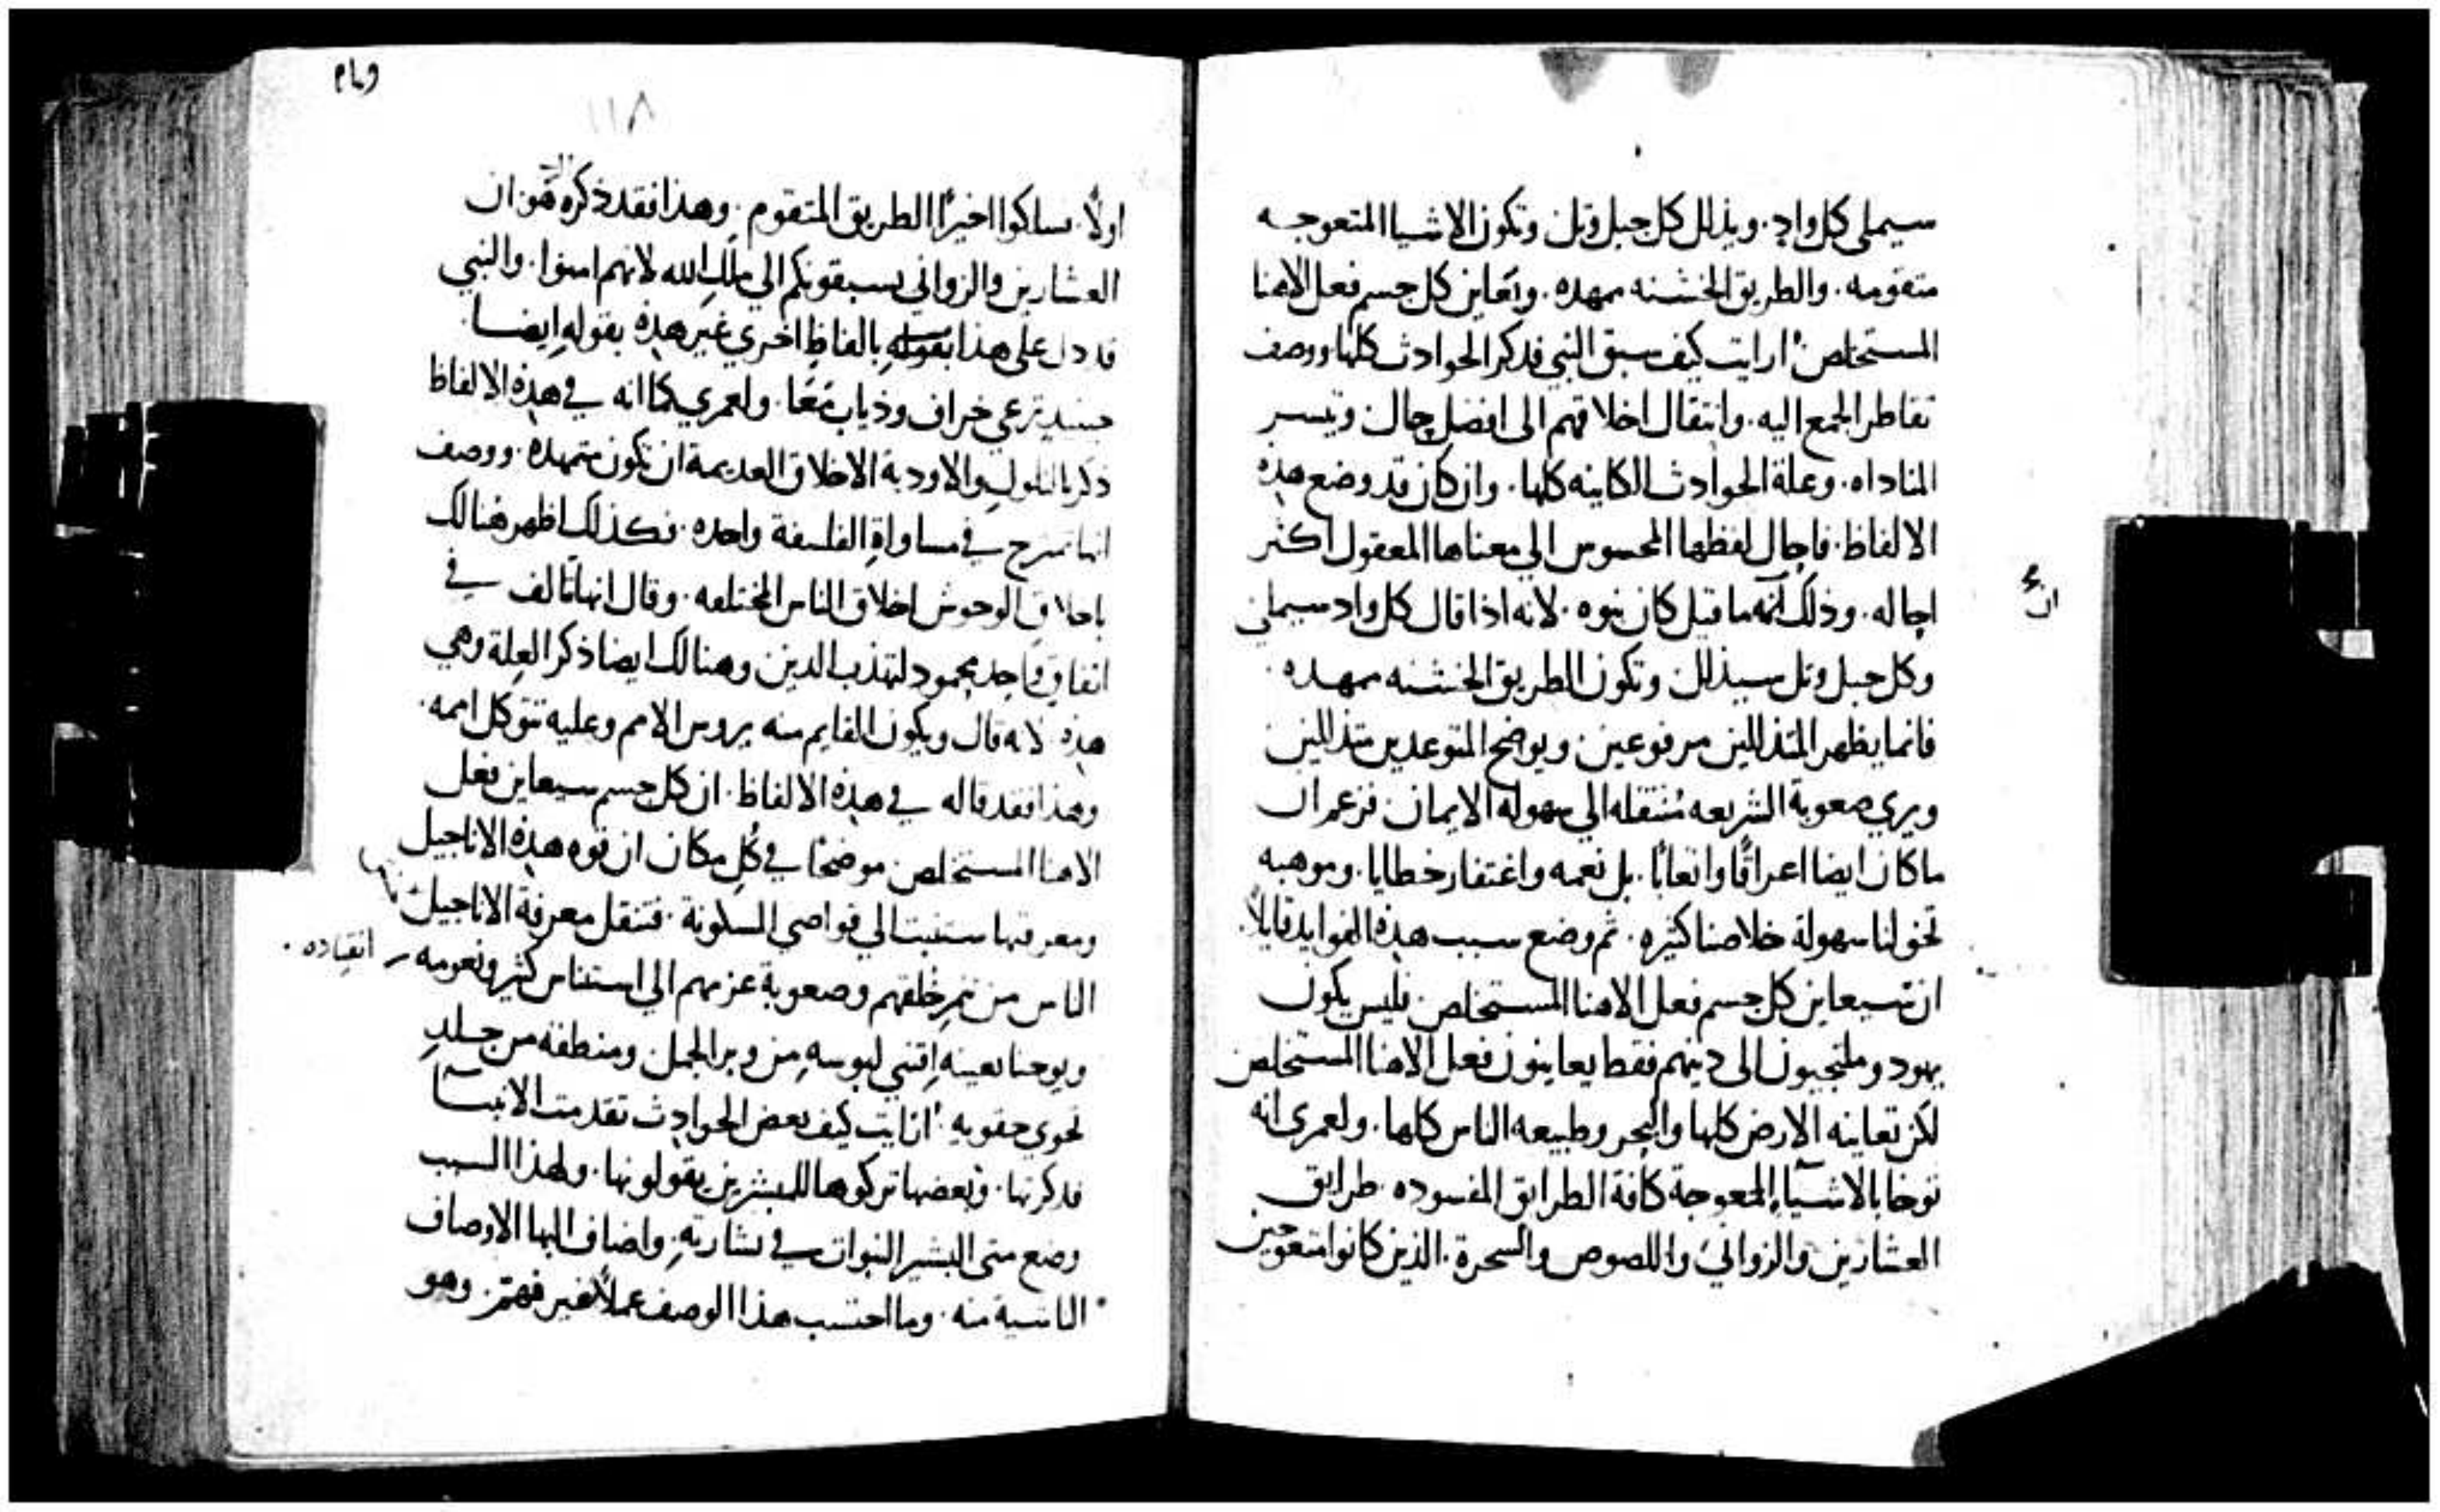 سيملى كل واد. ويذلل كل جبل وتل. وتكون الاشيا المتعوجه
متقومه. والطريق الخشنه ممهده. ويعاين كل جسم فعل الاهنا
المستخلص ارايت كيف سبق النبي فذكر الحوادث كلها ووصف
تقاطر الجمع اليه. وانتقال اخلاقهم الى افضل حال. وتيسر
المناداه. وعلة الحوادث الكاينه كلها. وان كان قد وضع هذه
الالفاظ. فاحال لفظها المحسوس الي معناها المعقول اكثر
احاله. وذلك انه ما قيل كان نبوه. لانه اذا قال كل واد سيملى
ان
وكل جبل وتل سيذلل. وتكون الطريق الخشنه ممهده.
فانما يظهر المتذللين مرفوعين. ويوضح المتوعدين متذللين
ويري صعوبة الشريعه منتقله الي سهولة الايمان. فزعم ان
ما كان ايضا اعراقًا واتعابًا. بل نعمه واغتفار خطايا. وموهبه
تخولنا سهولة خلاصنا كثيره. ثم وضع سبب هذه الفوايد قايلاً.
ان سيعاين كل جسم فعل الاهنا المستخلص. فليس يكون
يهود وملتجيون الى دينهم فقط يعاينون فعل الاهنا المستخلص
لكن تعاينه الارض كلها والبحر وطبيعه الناس كلها. ولعمرى انه
توخا بالاشياء المعوجة كافة الطرايق المفسوده. طرايق
العشارين والزواني واللصوص والسحرة. الذين كانوا متعوجين
١١٨
اولًا. سلكوا اخيرًا الطريق المتقوم. وهذا فقد ذكره هو ان
العشارين والزواني يسبقونكم الي ملك الله لانهم امنوا. والنبي
قد دل على هذا بقوله بالفاظ اخري غير هذه بقوله ايضا.
حينيذ ترعي خراف وذياب معًا. ولعمري كما انه في هذه الالفاظ
ذكر بالتلول والاودية الاخلاق العديمة ان تكون متمهده. ووصف
انها تمزج في مساواة الفلسفة واحده. فكذلك اظهر هنالك
باخلاق الوحوش اخلاق الناس المختلفه. وقال انها تالف في
اتفاق واحد محمود لتهذب الدين وهنالك ايضا ذكر العلة وهي
هذه لانه قال ويكون القايم منه يروس الامم وعليه تتوكل اممه.
وهذا فقد قاله في هذه الالفاظ. ان كل جسم سيعاين فعل
الاهنا المستخلص موضحًا في كل مكان ان قوه هذه الاناجيل
ومعرفتها ستنبت الي قواصي المسكونة. فتنقل معرفة الاناجيل
الناس من خلقهم وصعوبة عزمهم الي استناس كثير ونعومه
انقياده.
ويوحنا بعينه اقتني لبوسه من وبر الجمل. ومنطقه من جلد
تحوي حقويه. ارايت كيف بعض الحوادث تقدمت الانبيا
فذكرتها. وبعضها تركوها للمبشرين يقولونها. ولهذا السبب
وضع متى البشير النبوات في بشارته. واضاف اليها الاوصاف
منه. وما احتسب هذا الوصف عملاً غير مهم. وهو